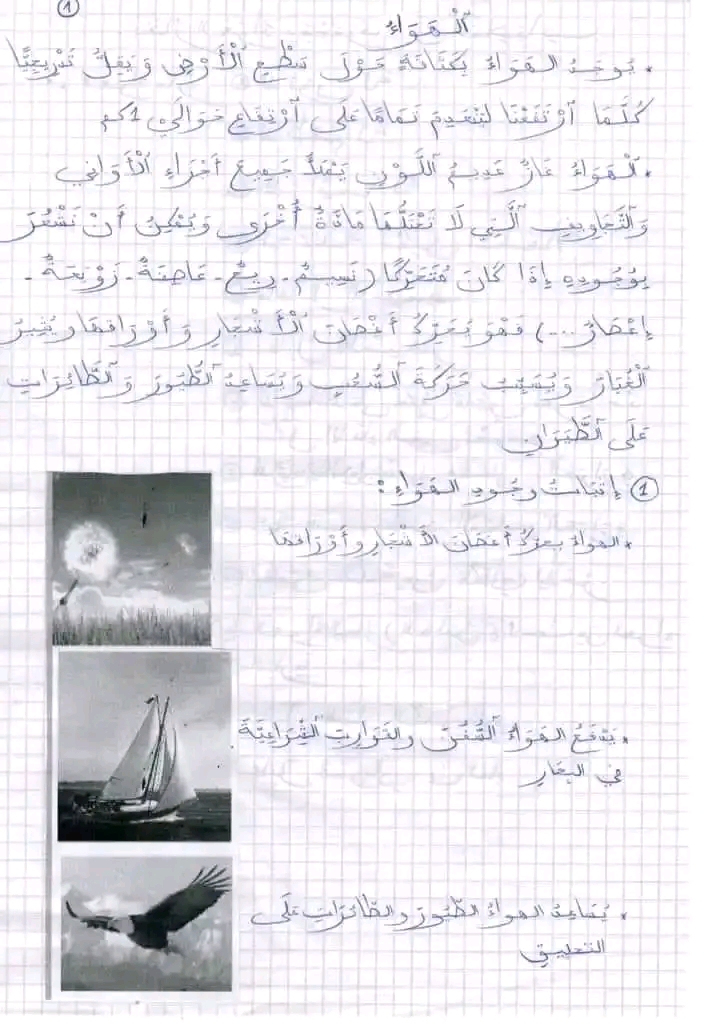 1
اَلْهَوَاءُ
• يُوجَدُ الهَوَاءُ بِكَثَافَةٍ حَوْلَ سَطْحِ اَلْأَرْضِ وَيَقِلُّ تَدْرِيجِيًّا
كُلَّمَا اَرْتَفَعْنَا لِيَنْعَدِمَ تَمَامًا عَلَى اَرْتِفَاعِ حَوَالَيْ 1كم
• اَلْهَوَاءُ غَازٌ عَدِيمُ اَللَّوْنِ يَمْلَأُ جَمِيعَ أَجْزَاءِ اَلْأَوَانِي
وَاَلتَّجَاوِيفِ اَلَّتِي لَا تَحْتَلُّهَا مَادَّةٌ أُخْرَى وَيُمْكِنُ أَنْ نَشْعُرَ
بِوُجُودِهِ إِذَا كَانَ مُتَحَرِّكًا (نَسِيمٌ - رِيحٌ - عَاصِفَةٌ - زَوْبَعَةٌ -
إِعْصَارٌ ...) فَهْوَ يُحَرِّكُ أَغْصَانَ اَلْأَشْجَارِ وَأَوْرَاقَهَا وَيُثِيرُ
اَلْغُبَارَ وَيُسَبِّبُ حَرَكَةَ اَلسُّحُبِ وَيُسَاعِدُ اَلطُّيُورَ وَاَلطَّائِرَاتِ
عَلَى اَلطَّيَرَانِ
1 إِثْبَاتُ وُجُودِ الهَوَاءِ:
• الهواءُ يحرّكُ أغصَانَ الأَشْجَارِ وأَوْرَاقَهَا
• يَدْفَعُ الهَوَاءُ اَلسُّفُنَ والقَوَارِبَ اَلشِّرَاعِيَّةَ
في البِحَارِ
• يُسَاعِدُ الهواءُ الطُّيُورَ والطّائراتِ عَلَى
التحليقِ